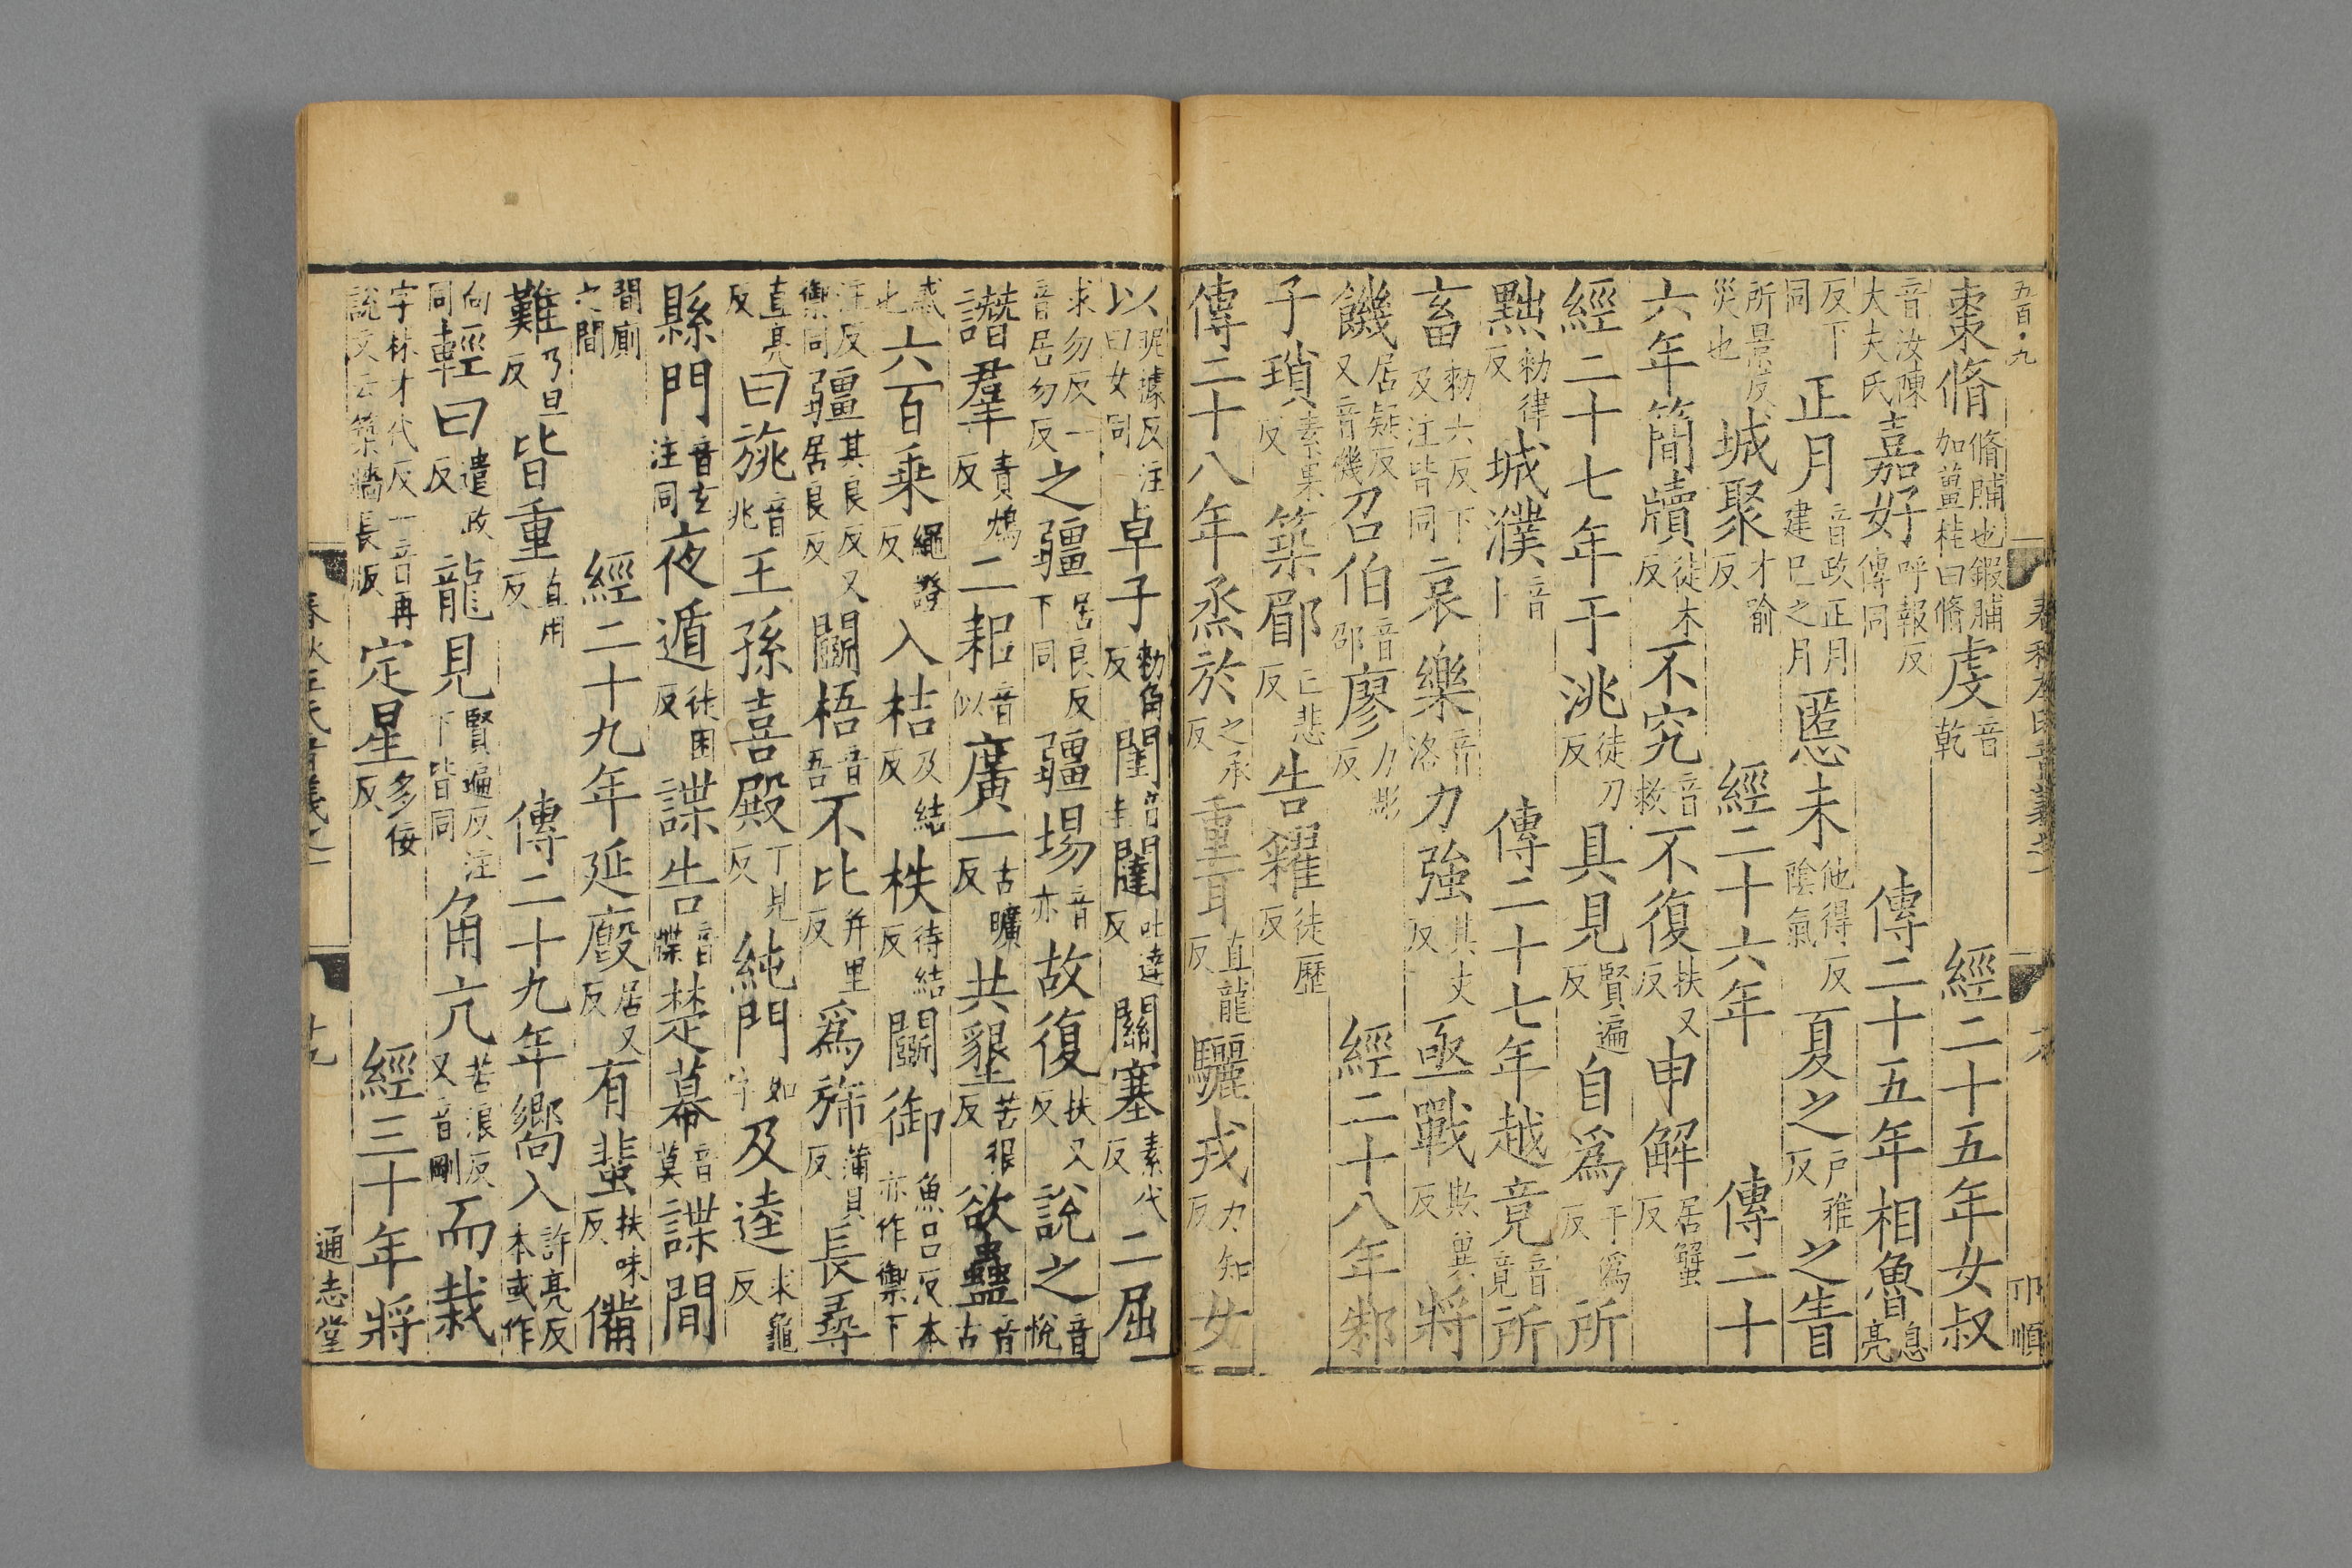 五百·九
棗脩脩脯也鍛脯加薑桂曰脩虔音乾 經二十五年女叔
音汝陳大夫氏嘉好呼報反傳同 傳二十五年相魯息亮
反下同 正月音政正月建巳之月慝未他得反陰氣 夏之戸雅反之眚
所景反災也城聚才喻反 經二十六年 傳二十
六年簡牘徒木反不究音救不復扶又反申解居蟹反
經二十七年于洮徒刀反具見賢遍反自爲于僞反所
黜勑律反城濮音卜 傳二十七年越竟音境所
畜勑六反下及注皆同哀樂音洛力強其丈反亟戰欺冀反將
饑居疑反又音機召伯音邵廖力彫反 經二十八年邾
子瑣素果反築郿亡悲反告糴徒歷反
傳二十八年烝於之承反重耳直龍反驪戎力知反女
以昵據反注曰女同 卓子勑角反閨音圭闥吐達反關塞素代反二屈
求勿反一音居勿反之疆居良反下同疆埸音亦故復扶又反說之音悅
譖羣責鴆反二耜音似廣一古曠反共墾苦很反欲蠱音古
惑也六百乘繩證反入桔及結反柣待結反鬭御魚呂反本亦作禦下
注反禦同疆其良反又居良反鬭梧音吾不比并里反爲斾蒲貝反長尋
直亮反曰旐音兆王孫喜殿丁見反純門如字及逵求龜反
縣門音玄注同夜遁徒困反諜告音牒楚幕音莫諜間
間廁之間 經二十九年延廏居又反有蜚扶味反備
難乃旦反皆重直用反 傳二十九年嚮入許亮反本或作
向輕同輕曰遣政反龍見賢遍反注下皆同角亢苦浪反又音剛而栽
字林才代反一音再說文云築牆長版定星多佞反 經三十年將
通志堂